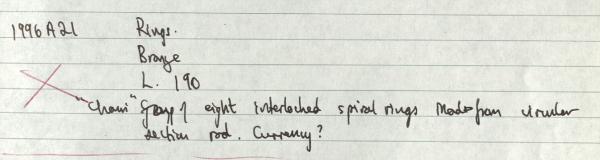 1996 A21 Rings.
Bronze
L. 190
"Chain" Group of eight interlocked spiral rings made from circular
section rod. Currency?